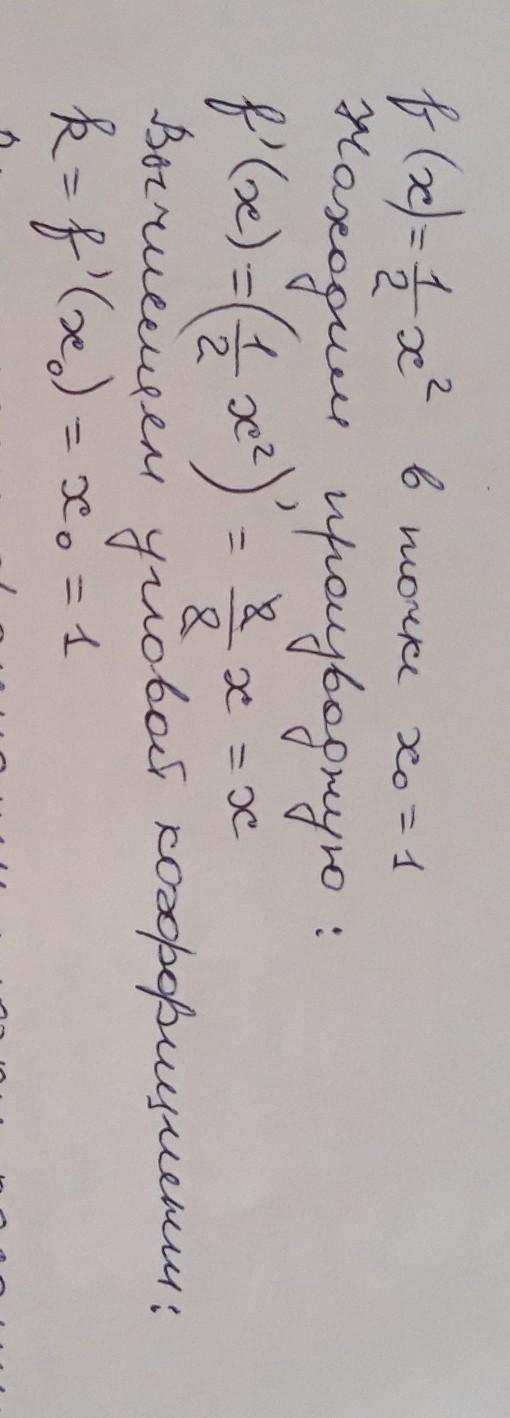 f(x)=1/2 x² в точке x₀=1
Находим производную:
f'(x)=(1/2 x²)' = 2/2 x = x
Вычисляем угловой коэффициент:
k = f'(x₀) = x₀ = 1